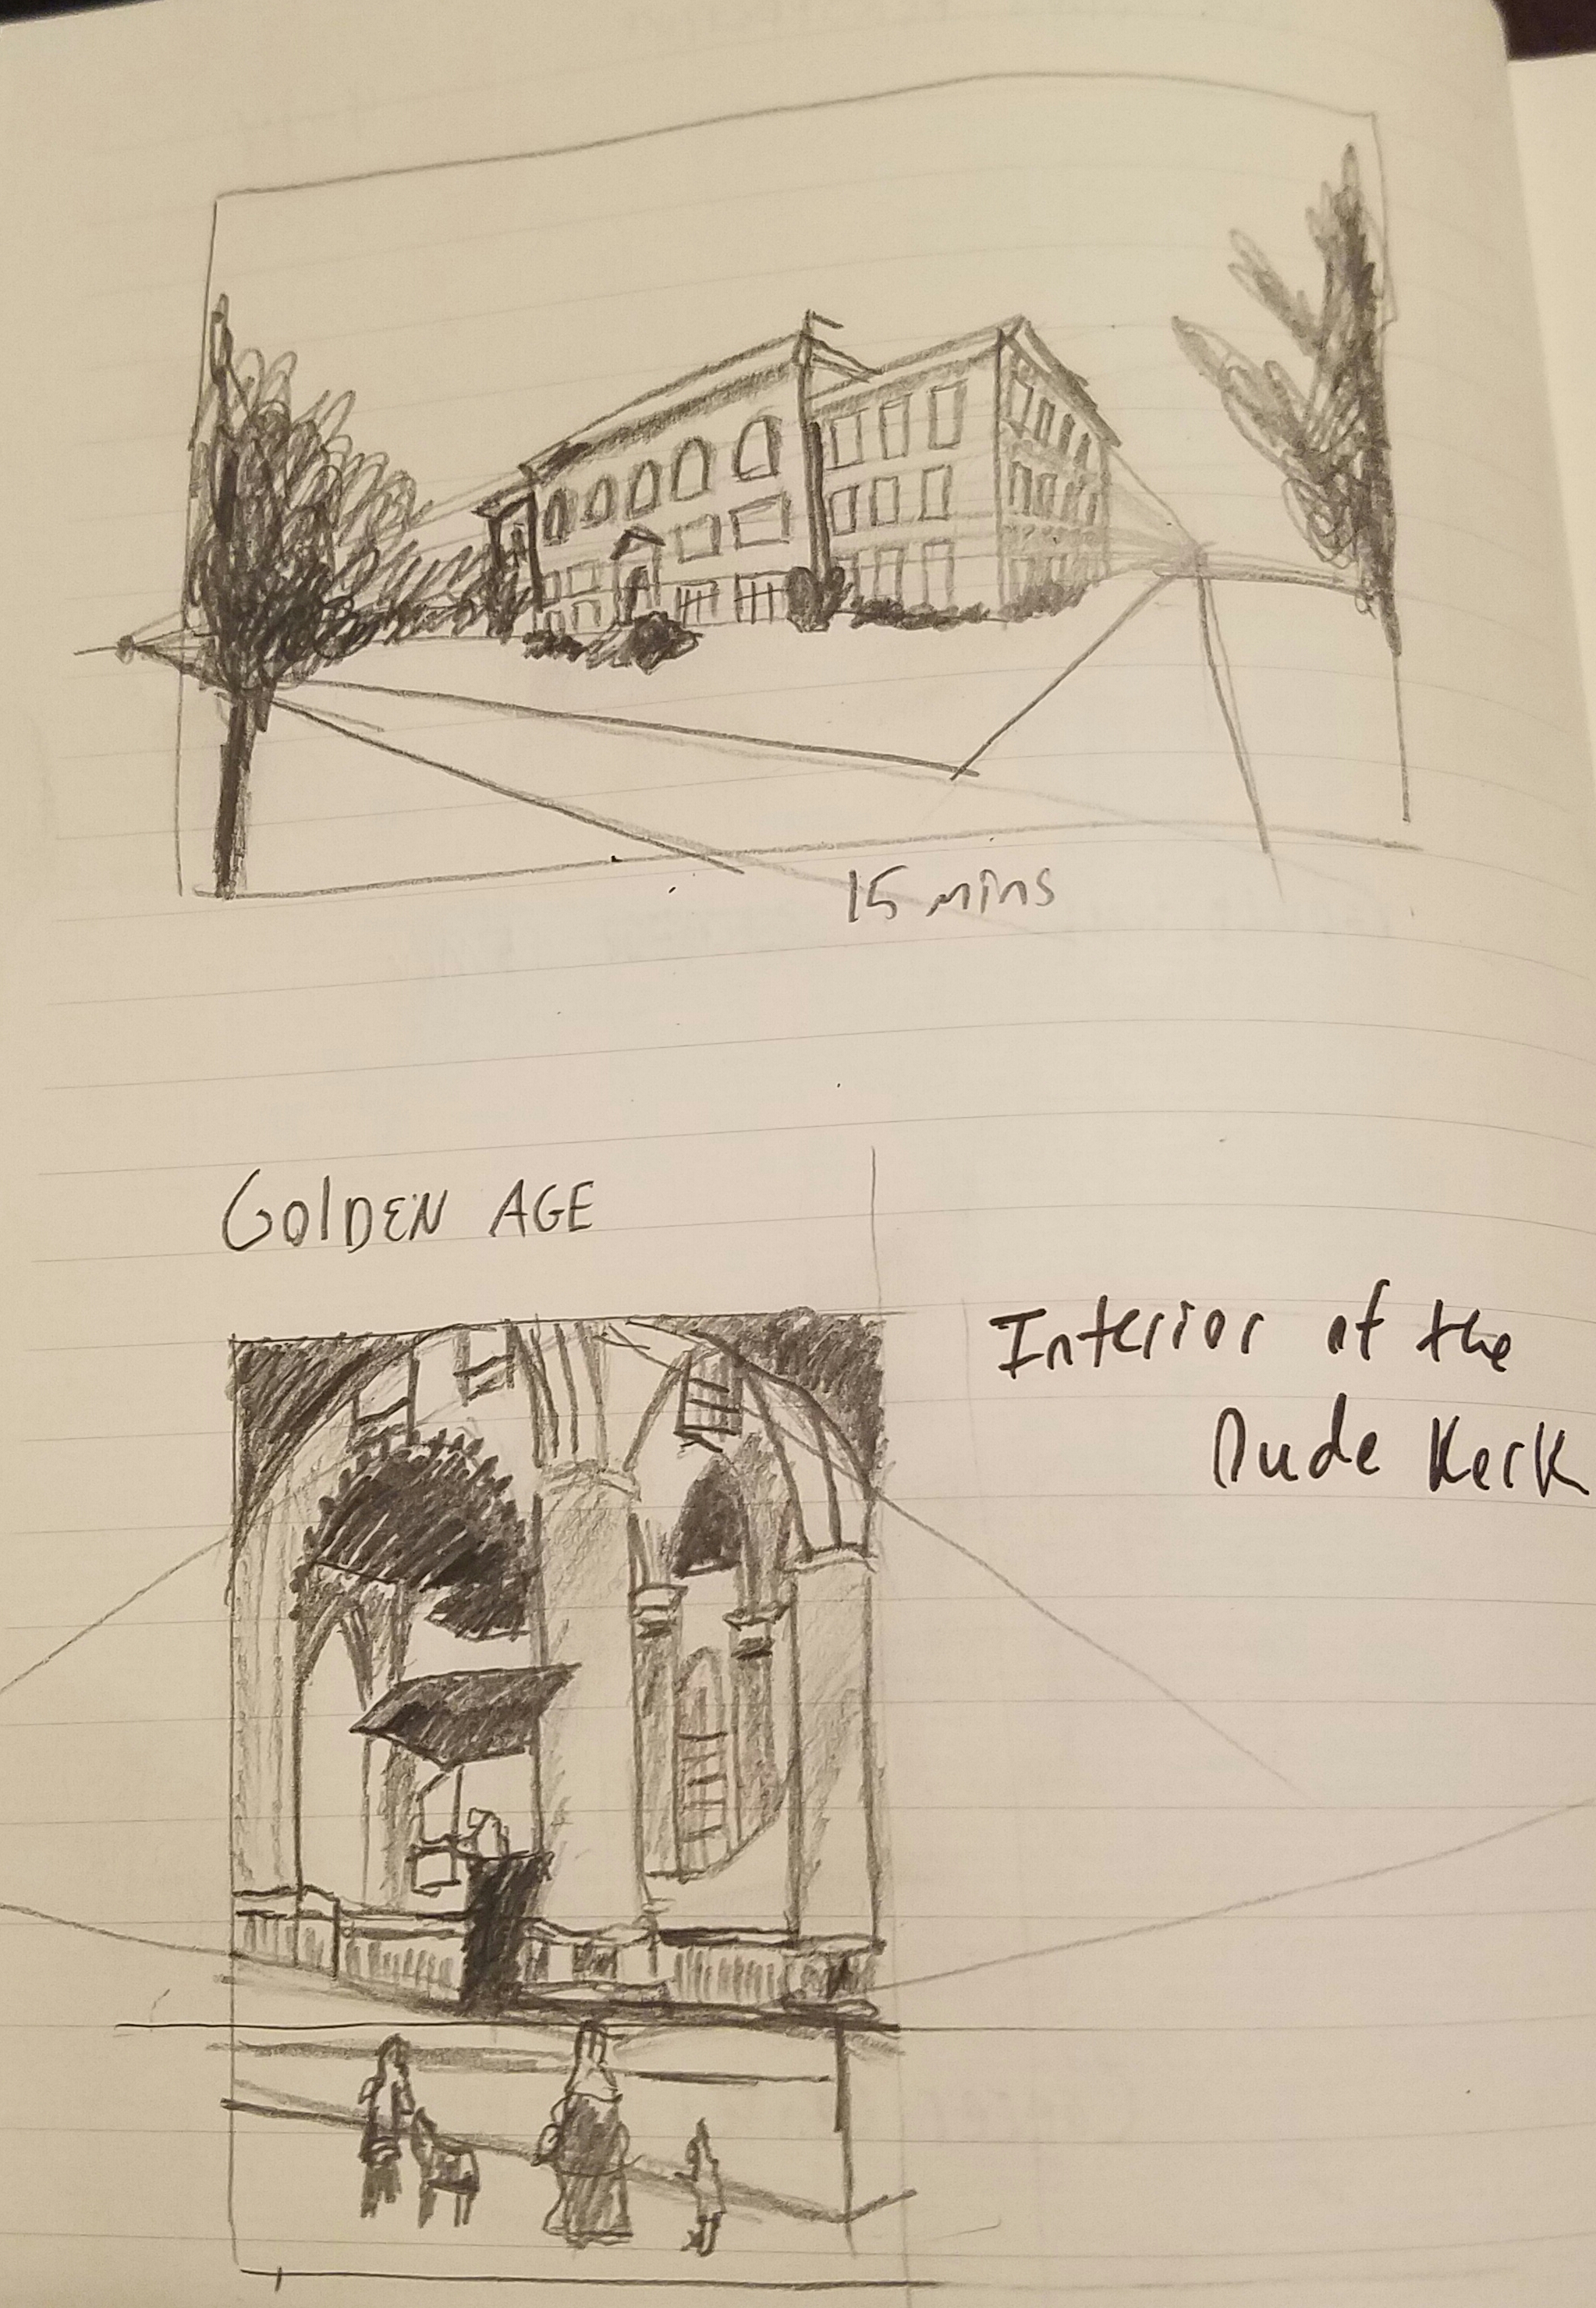 15 mins
GOlDEN AGE
Interior of the
Oude Kerk